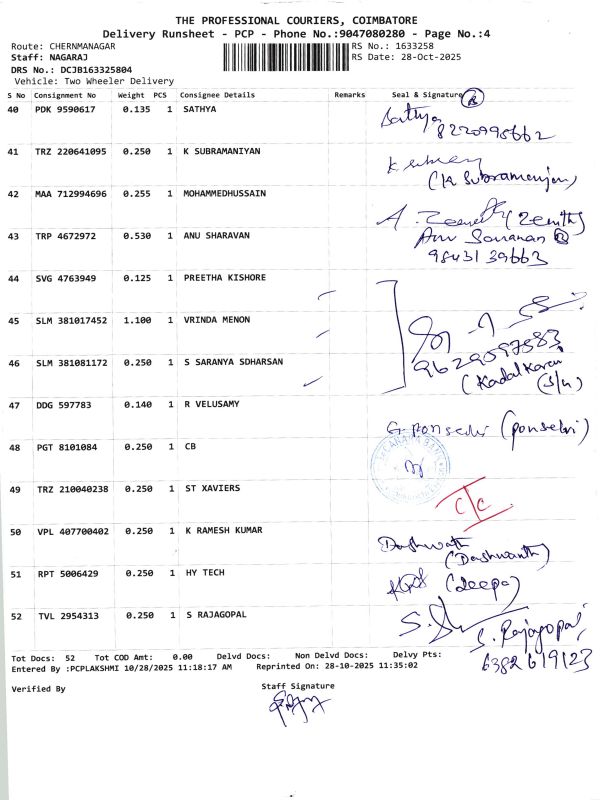 THE PROFESSIONAL COURIERS, COIMBATORE
Delivery Runsheet - PCP - Phone No.:9047080280 - Page No.:4
Route: CHERNMANAGAR RS No.: 1633258
Staff: NAGARAJ RS Date: 28-Oct-2025
DRS No.: DCJB163325804
Vehicle: Two Wheeler Delivery
S No Consignment No Weight PCS Consignee Details Remarks Seal & Signature
40 PDK 9590617 0.135 1 SATHYA Sathya
8220998662
41 TRZ 220641095 0.250 1 K SUBRAMANIYAN
42 MAA 712994696 0.255 1 MOHAMMEDHUSSAIN (Zenith)
43 TRP 4672972 0.530 1 ANU SHARAVAN Anu Saravanan
98431 39663
44 SVG 4763949 0.125 1 PREETHA KISHORE
45 SLM 381017452 1.100 1 VRINDA MENON
9629097583
46 SLM 381081172 0.250 1 S SARANYA SDHARSAN
47 DDG 597783 0.140 1 R VELUSAMY G. ponselvi (ponselvi)
48 PGT 8101084 0.250 1 CB
49 TRZ 210040238 0.250 1 ST XAVIERS C/C
50 VPL 407700402 0.250 1 K RAMESH KUMAR Dashwath
(Dashwanth)
51 RPT 5006429 0.250 1 HY TECH (deepa)
52 TVL 2954313 0.250 1 S RAJAGOPAL S. Rajagopal
6382619123
Tot Docs: 52 Tot COD Amt: 0.00 Delvd Docs: Non Delvd Docs: Delvy Pts:
Entered By :PCPLAKSHMI 10/28/2025 11:18:17 AM Reprinted On: 28-10-2025 11:35:02
Verified By Staff Signature